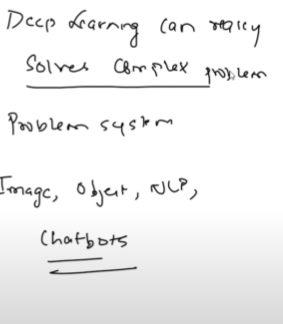 Deep Learning can really
Solves Complex problem
Problem system
Image, Object, NLP,
Chatbots